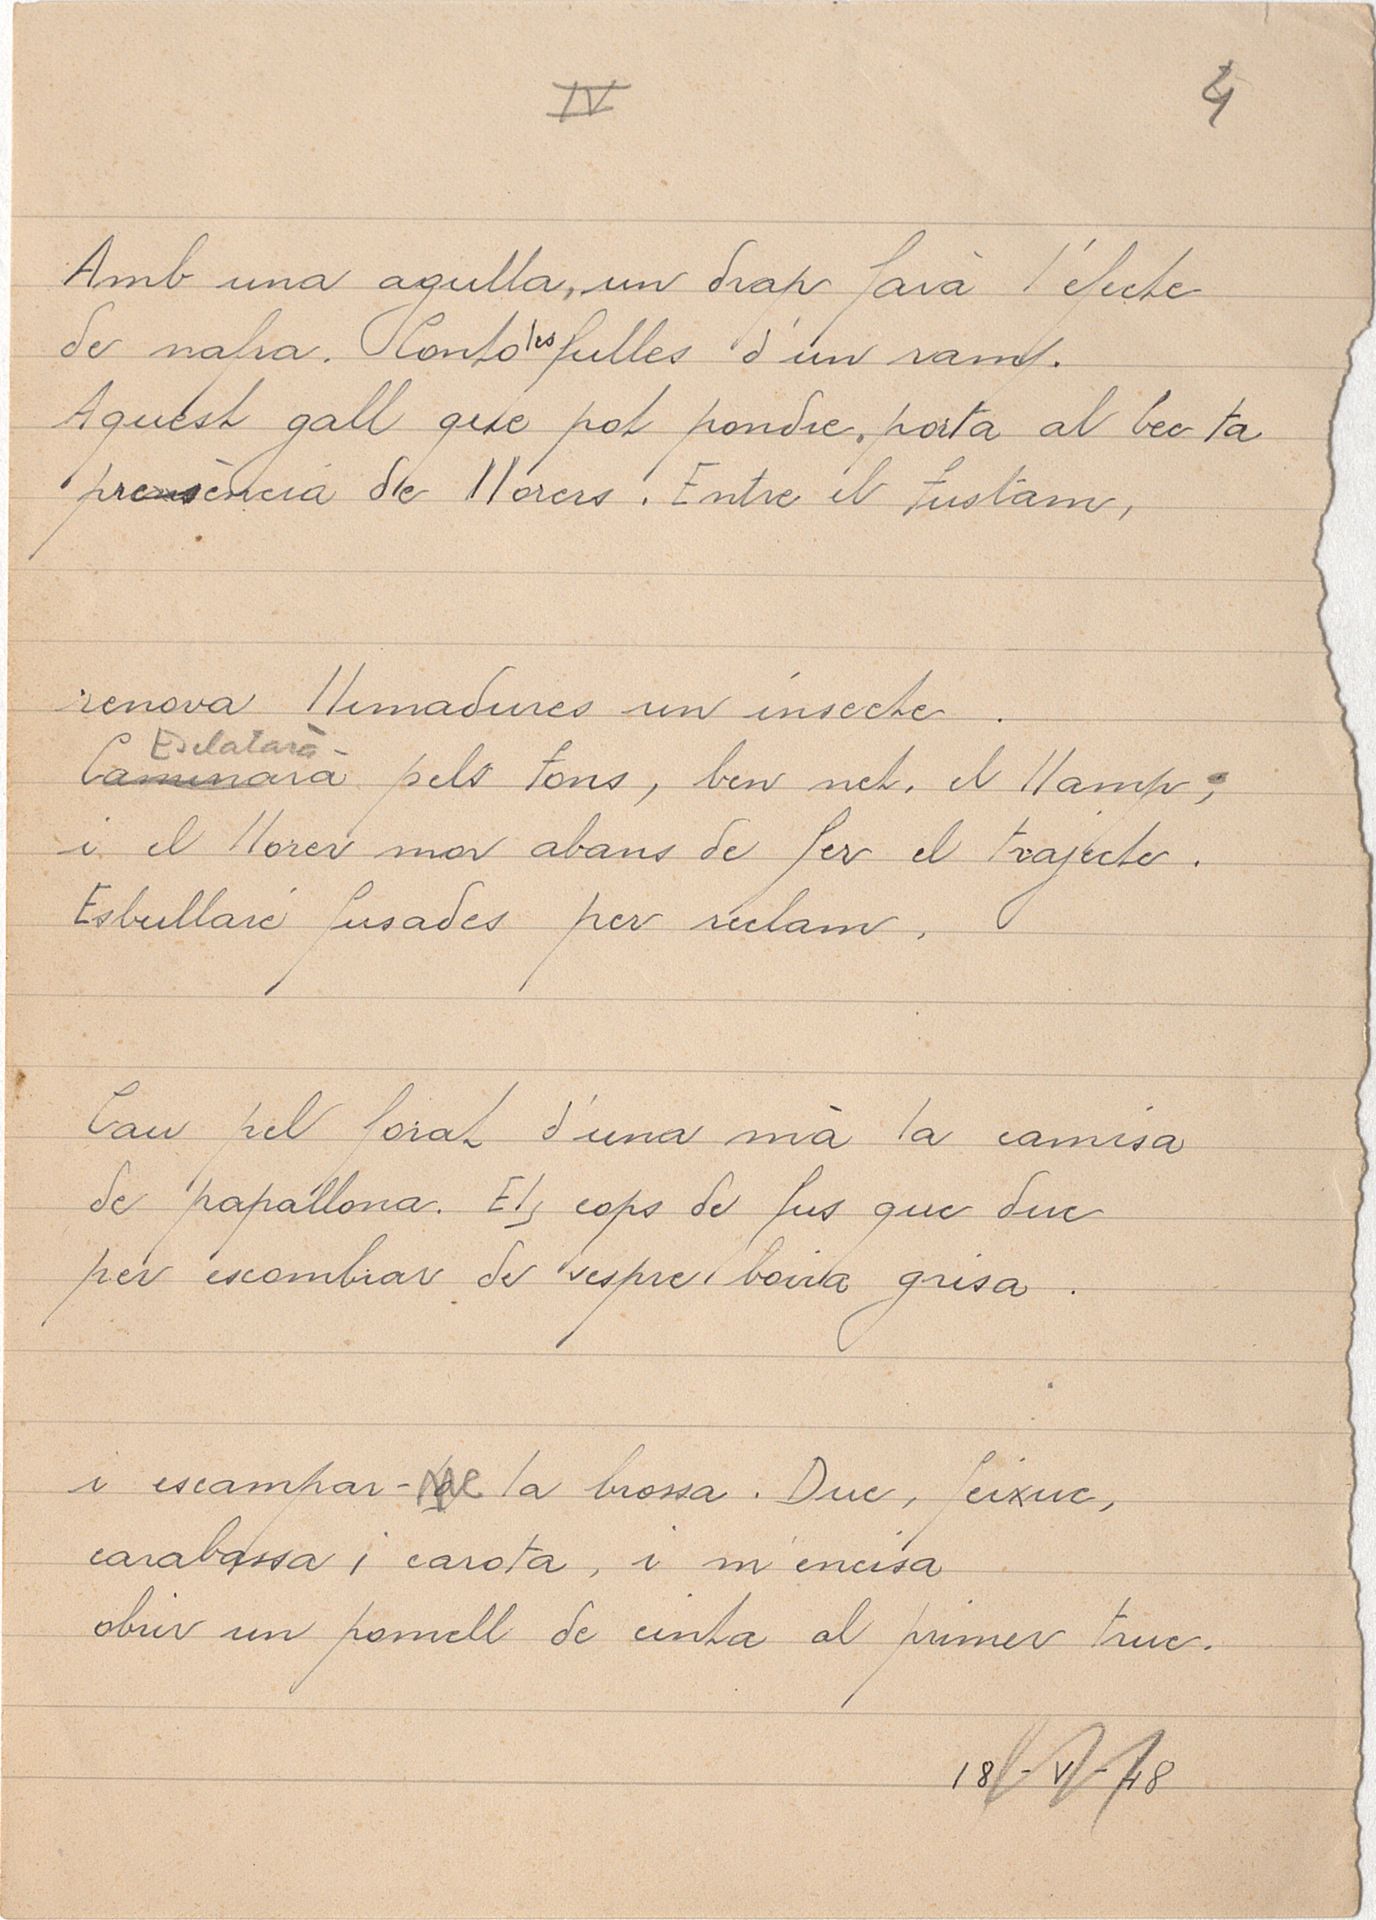 IV 4
Amb una agulla, un drap farà l'efecte
de nafra. Conto les fulles d'un ram.
Aquest gall que pot pondre, porta al bec la
presència de llorers. Entre el fustam,
renova llimadures un insecte.
Esclatarà
Caminarà pels fons, ben net, el llamp;
i el llorer mor abans de fer el trajecte.
Esbullaré fusades per reclam,
Cau pel forat d'una mà la camisa
de papallona. Els cops de fus que duc
per escombrar de vespre boira grisa.
i escampar-ne la brossa. Duc, feixuc,
carabassa i carota, i m'encisa
obrir un pomell de cinta al primer truc.
18-V-48